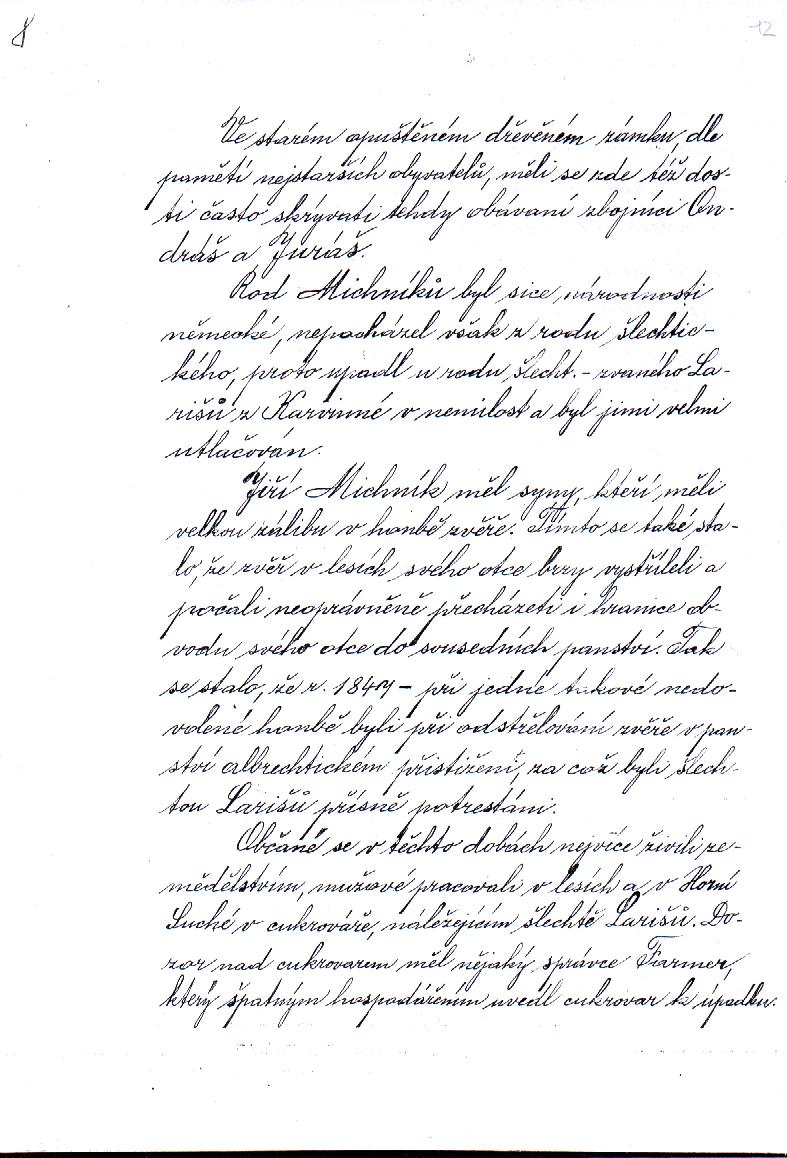 8
12
Ve starém opuštěném dřevěném zámku, dle
pamětí nejstarších obyvatelů, měli se zde též dos-
ti často skrývati tehdy obávaní zbojníci On-
dráš a Juráš.
Rod Michníků byl sice, národnosti
německé, nepocházel však z rodu šlechtic-
kého, proto upadl u rodu šlecht. - zvaného La-
rišů z Karvinné v nemilost a byl jimi velmi
utlačován.
Jiří Michník měl syny, kteří, měli
velkou zálibu v honbě zvěře. Tímto se také sta-
lo, že zvěř v lesích svého otce brzy vystříleli a
počali neoprávněně přecházeti i hranice ob-
vodu svého otce do sousedních panství. Tak
se stalo, že r. 1847 - při jedné takové nedo-
volené honbě byli při odstřelování zvěře v pan-
ství albrechtickém přistiženi, za což byli šlech-
tou Larišů přísně potrestáni.
Občané se v těchto dobách nejvíce živili ze-
mědělstvím, mužové pracovali v lesích a v Horní
Suché v cukrováře, náležejícím šlechtě Larišů. Do-
zor nad cukrovarem měl nějaký správce Farmer,
který špatným hospodářením uvedl cukrovar k úpadku.